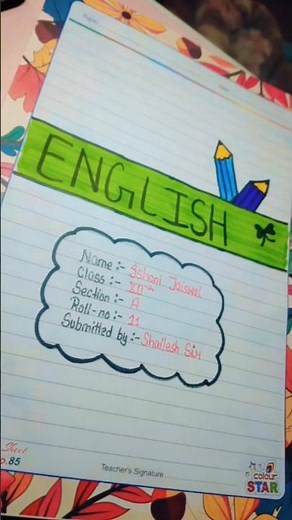 ENGLISH
Name :- Ishani Jaiswal
Class :- XIth
Section :- A
Roll-no :- 11
Submitted by :- Shailesh Sir
Sheet
o.85
Teacher's Signature
colour
STAR